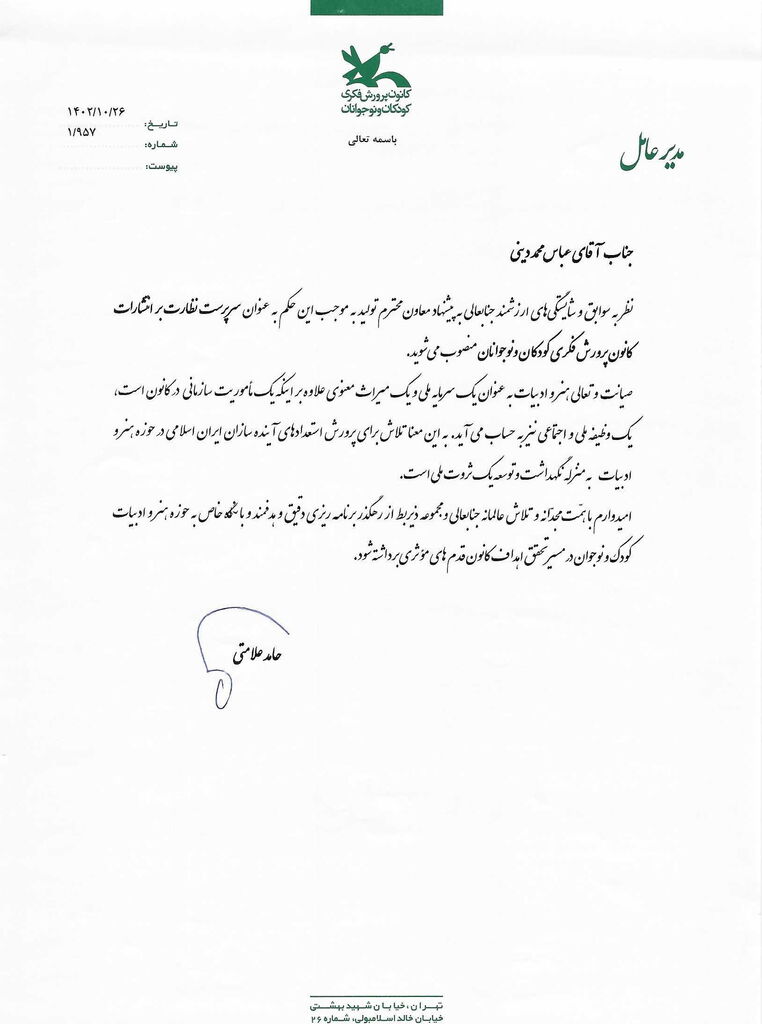 کانون پرورش فکری
کودکان و نوجوانان
باسمه تعالی
مدیر عامل
تاریخ: ۱۴۰۲/۱۰/۲۶
شماره: ۱/۹۵۷
پیوست:
جناب آقای عباس محمددینی
نظر به سوابق و شایستگی‌های ارزشمند جنابعالی به پیشنهاد معاون محترم تولید به موجب این حکم به عنوان سرپرست نظارت بر انتشارات
کانون پرورش فکری کودکان و نوجوانان منصوب می‌شوید.
صیانت و تعالی هنر و ادبیات به عنوان یک سرمایه ملی و یک میراث معنوی علاوه بر اینکه یک مأموریت سازمانی در کانون است،
یک وظیفه ملی و اجتماعی نیز به حساب می‌آید. به این معنا تلاش برای پرورش استعدادهای آینده سازان ایران اسلامی در حوزه هنر و
ادبیات به منزله نگهداشت و توسعه یک ثروت ملی است.
امیدوارم با همّت مجدّانه و تلاش عالمانه جنابعالی و مجموعه ذیربط از رهگذر برنامه ریزی دقیق و هدفمند و با نگاه خاص به حوزه هنر و ادبیات
کودک و نوجوان در مسیر تحقق اهداف کانون قدم های مؤثری برداشته شود.
حامد علامتی
تهران، خیابان شهید بهشتی
خیابان خالد اسلامبولی، شماره ۲۶